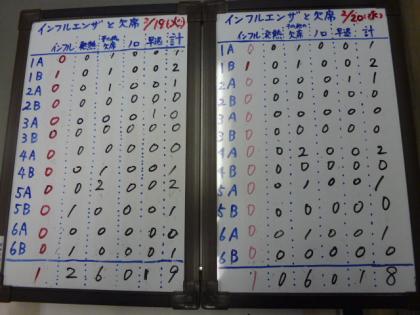 インフルエンザと欠席 2/19(火)
インフル 発熱 その他の欠席 ノロ 早退 計
1A 0 0 1 0 0 1
1B 1 0 1 0 0 2
2A 0 0 1 0 0 1
2B 0 0 0 0 0 0
3A 0 0 0 0 1 0
3B 0 0 0 0 0 0
4A 0 0 0 0 0 0
4B 0 0 1 0 0 1
5A 0 0 2 0 0 2
5B 0 1 0 0 0 1
6A 0 0 0 0 0 0
6B 0 1 0 0 0 1
1 2 6 0 1 9
インフルエンザと欠席 2/20(水)
インフル 発熱 その他の欠席 ノロ 早退 計
1A 0 0 1 0 0 1
1B 1 0 1 0 0 2
2A 0 0 0 0 0 0
2B 0 0 0 0 0 0
3A 0 0 0 0 0 0
3B 0 0 0 0 0 0
4A 0 0 2 0 0 2
4B 0 0 0 0 0 0
5A 0 0 1 0 0 1
5B 0 0 0 0 0 0
6A 0 0 1 0 0 1
6B 0 0 0 0 0 0
1 0 6 0 1 8